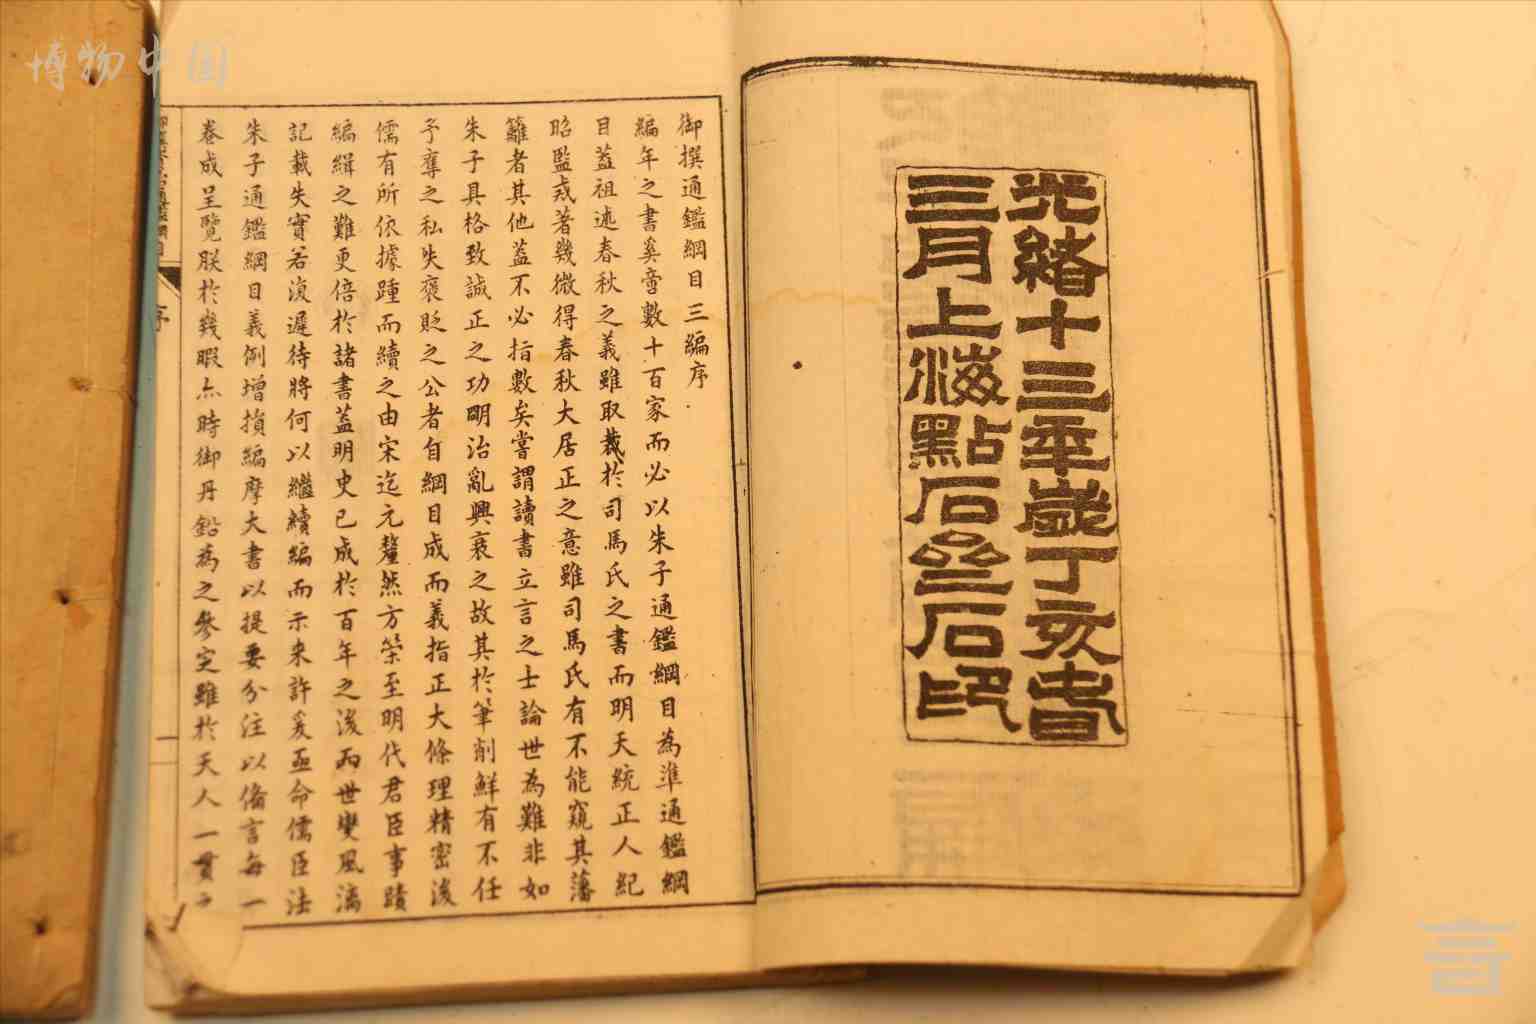 博物中国
光緒十三年歲丁亥春
三月上海點石齋石印
御撰通鑑綱目三編序
編年之書奚啻數十百家而必以朱子通鑑綱目為準通鑑綱
目葢祖述春秋之義雖取裁於司馬氏之書而明天統正人紀
昭監戒著幾微得春秋大居正之意雖司馬氏有不能窺其藩
籬者其他葢不必指數矣嘗謂讀書立言之士論世為難非如
朱子具格致誠正之功明治亂興衰之故其於筆削鮮有不任
予奪之私失褒貶之公者自綱目成而義指正大條理精密後
儒有所依據踵而續之由宋迄元釐然方策至明代君臣事蹟
編緝之難更倍於諸書葢明史已成於百年之後而世變風漓
記載失實若復遲待將何以繼續編而示来許爰亟命儒臣法
朱子通鑑綱目義例增損編摩大書以提要分注以備言每一
卷成呈覽朕於幾暇亦時御丹鉛為之參定雖於天人一貫之
序
言